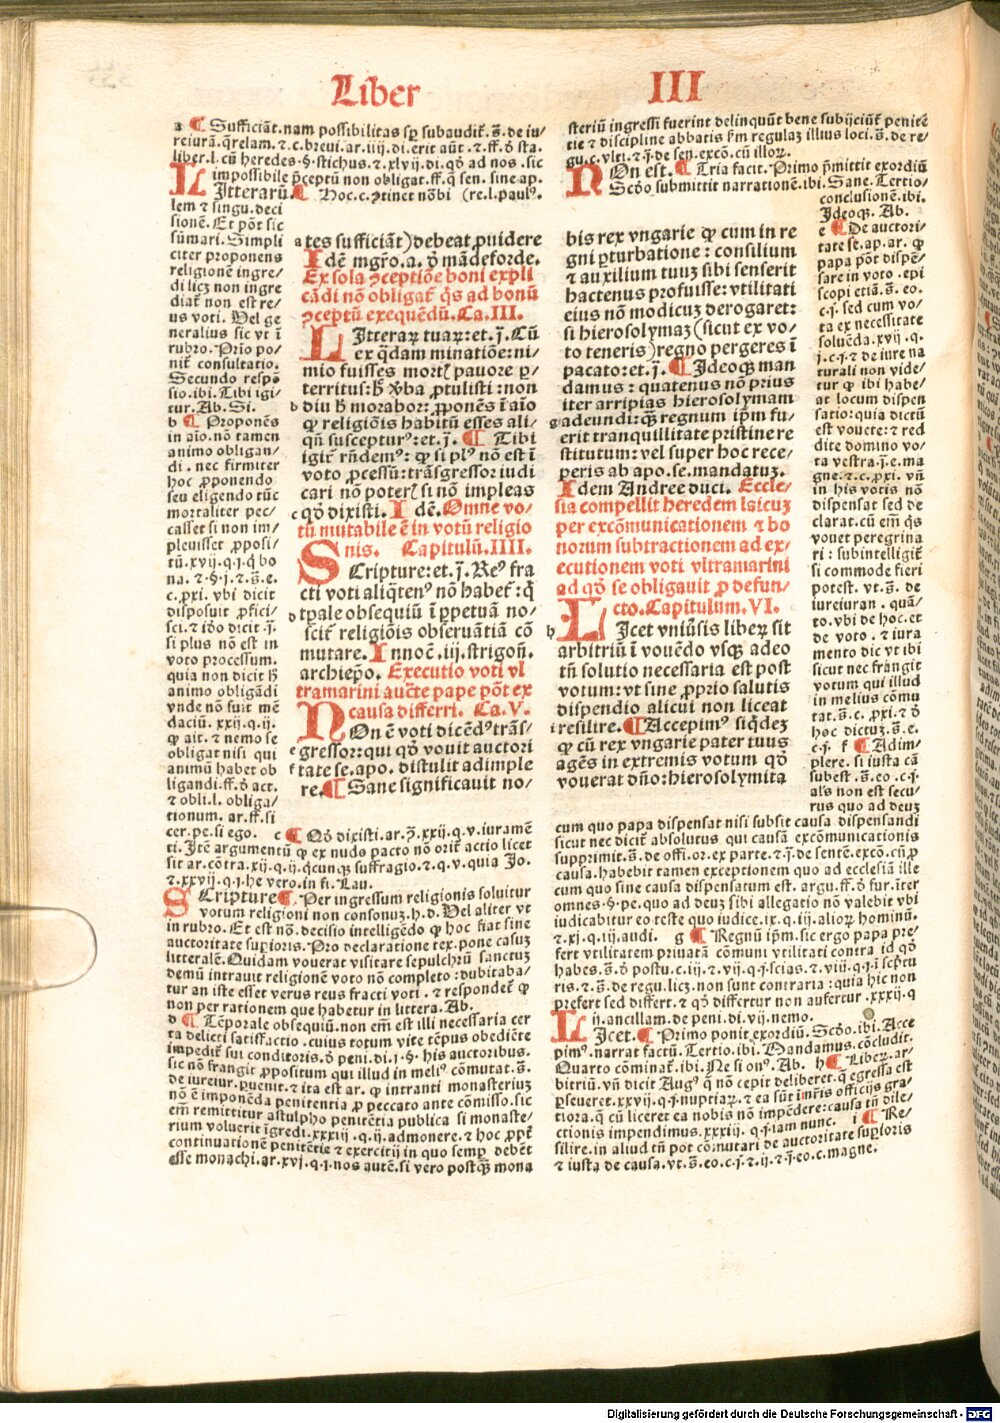 Liber III
a ¶ Sufficiāt.nam possibilitas sꝑ subaudit᷑.s̄.de iu/
reiurā.q̄relam.⁊.c.breui.ar.iiij.di.erit aūt.⁊.ff.ō sta.
liber.l.cū heredes.§.stichus.⁊.xlvij.di.qō ad nos.sic
impossibile p̄ceptū non obligat.ff.q̄ sen.sine ap.
LItterarū.¶ Hoc.c.ꝯtinet nōbi (re.l.paulꝰ.
lem ⁊ singu.deci
sionē. Et pōt sic
sūmari. Simpli
citer proponens
religionē ingre/
di licꝫ non ingre
diat᷑ non est re/
us voti. Vel ge
neralius sic vt ī
rubro. Prio po/
nit᷑ consultatio.
Secundo respō
sio.ibi. Tibi igi/
tur. Ab. Si.
b ¶ Proponēs
in aīo.nō tamen
animo obligan/
di. nec firmiter
hoc ꝓponendo
seu eligendo tūc
mortaliter pec/
casset si non im/
pleuisset ꝓposi/
tū.xvij.q.j.q̄ bo
na. ⁊.§.j.⁊.s̄.e.
c.ꝓxi. vbi dicit
disposuit ꝓfici/
sci.⁊ iōo dicit .j̄.
si plus nō est in
voto processum.
quia non dicit ħ
animo obligādi
vnde nō fuit mē
daciū. xxij.q.ij.
ꝙ ait. ⁊ nemo se
obligat nisi qui
animū habet ob
ligandi.ff.ō act.
⁊ obli.l. obliga/
tionum. ar.ff.si
cer.pe.si ego. c ¶ Qō dixisti.ar.ꝫ.xxij.q.v.iuramē
ti. Itē argumentū ꝙ ex nudo pacto nō orit᷑ actio licet
sit ar.cōtra.xij.q.ij.q̄cunqꝫ suffragio.⁊.q.v.quia Jo.
⁊.xxvij.q.j.he vero.in fi. Lau.
SCripture¶. Per ingressum religionis soluitur
votum religioni non consonuꝫ.h.d. Vel aliter vt
in rubro. Et est nō. decisio intelligēdo ꝙ hoc fiat sine
auctoritate suꝑioris. Pro declaratione tex.pone casuꝫ
litteralē. Quidam vouerat visitare sepulchrū sanctuꝫ
demū intrauit religionē voto nō completo: dubitaba/
tur an iste esset verus reus fracti voti. ⁊ respondet᷑ ꝙ
non per rationem que habetur in littera. Ab.
d ¶ Tēporale obsequiū. non em̄ est illi necessaria cer
ta delicti satisfactio. cuius totum vite tēpus obediēte
impedit᷑ sui conditoris.ō peni.di.j.§.his auctoribus.
sic nō frangit ꝓpositum qui illud in meliꝰ cōmutat.s̄.
de iureiur.ꝑuenit.⁊ ita est ar. ꝙ intranti monasteriuꝫ
nō ē imponēda penitentia ꝓ peccato ante cōmisso.sic
em̄ remittitur astulpho penitētia publica si monaste/
rium voluerit īgredi.xxxiij.q.ij.admonere.⁊ hoc ꝓpt᷑
continuationē penitētie ⁊ exercitij in quo semꝑ debēt
esse monachi.ar.xvj.q.j.nos autē.si vero postq̄ꝫ mona
a tes sufficiāt) debeat ꝓuidere
Idē mgr̄o.a. ō mādeforde.
Ex sola ꝯceptiōe boni expli
cādi nō obligat᷑ q̄s ad bonū
ꝯceptū exequēdū. Ca. III.
LItteraꝝ tuaꝝ: et.j̄. Cū
ex q̄dam minatiōe: ni/
mio fuisses mortꝭ pauore ꝑ/
territus: ħ v̓ba ꝓtulisti: non
b diu ħ morabor: ꝓponēs ī aīo
ꝙ religiōis habitū esses ali/
qn̄ susceptur⁹: et.j̄. ¶ Tibi
igit᷑ rn̄dem⁹: ꝙ si pl⁹ nō est ī
voto ꝓcessū: trāsgressor iudi
cari nō poterꝭ si nō impleas
c qō dixisti. Idē. Omne vo/
tū mutabile ē in votū religio
nis. Capitulū. IIII.
SCripture: et.j̄. Re⁹ fra
cti voti aliq̄ten⁹ nō habet᷑: q̄
d tꝑale obsequiū ī ꝑpetuā no/
scit᷑ religiōis obseruātiā cō
mutare. Innocē.iij.strigoñ.
archiep̄o. Executio voti vl
tramarini auct̄e pape pōt ex
causa differri. Ca. V.
NOn ē voti dicēd⁹ trās/
e gressor: qui qō vouit auctori
f tate se.apo. distulit adimple
re. ¶ Sane significauit no/
bis rex vngarie ꝙ cum in re
gni ꝑturbatione: consilium
⁊ auxilium tuuꝫ sibi senserit
hactenus profuisse: vtilitati
eius nō modicuꝫ derogaret:
si hierosolymaꝫ (sicut ex vo/
to teneris) regno pergeres ī
pacato: et.j̄. ¶ Jdeoqꝫ man
damus: quatenus nō prius
iter arripias hierosolymam
g adeundi: q̄ꝫ regnum ip̄m fu/
erit tranquillitate pristine re
stitutum: vel super hoc rece/
peris ab apo.se. mandatuꝫ.
Idem Andree duci. Eccle/
sia compellit heredem laicuꝫ
per excōmunicationem ⁊ bo
norum subtractionem ad ex/
ecutionem voti vltramarini
ad qō se obligauit ꝓ defun/
cto. Capitulum. VI.
h LIcet vniūsis libeꝝ sit
arbitriū ī vouēdo vsqꝫ adeo
tn̄ solutio necessaria est post
votum: vt sine ꝓprio salutis
dispendio alicui non liceat
i resilire. ¶ Accepim⁹ siq̄deꝫ
ꝙ cū rex vngarie pater tuus
agēs in extremis votum qō
vouerat dn̄o: hierosolymita
steriū ingressi fuerint delinquūt bene subijciūt᷑ penitē
tie ⁊ discipline abbatis ẜm regulaꝫ illius loci.s̄.de re/
gu.c.vlti.⁊.j̄.de sen.excō.cū illoꝝ.
NOn est. ¶ Tria facit. Primo p̄mittit exordiū
Scōo submittit narrationē.ibi. Sane. Tertio/
conclusionē.ibi.
Jdeoqꝫ. Ab.
e ¶ De auctori/
tate se.ap.ar. ꝙ
papa pōt dispē/
sare in voto.epi
scopi etiā.s̄.eo.
c.j. sed cum vo/
ta ex necessitate
soluēda.xvij.q.
j.c.j.⁊ de iure na
turali non vide/
tur ꝙ ibi habe/
at locum dispen
satio: quia dictū
est vouete: ⁊ red
dite domino vo/
ta vestra.j̄.e.ma
gne.⁊.c.ꝓxi. vn̄
in his votis nō
dispensat sed de
clarat.cū em̄ q̄s
vouet peregrina
ri: subintelligit᷑
si commode fieri
potest. vt.s̄. de
iureiuran. quā/
to. vbi de hoc.et
de voto. ⁊ iura
mento dic vt ibi
sicut nec frangit
votum qui illud
in melius cōmu
tat.s̄.c. ꝓxi.⁊ ō
hoc dictuꝫ.s̄.e.
c.j. f ¶ Adim/
plere. si iusta cā
subest.s̄.eo.c.j.
al's non est secu/
rus quo ad deuꝫ
cum quo papa dispensat nisi subsit causa dispensandi
sicut nec dicit᷑ absolutus qui causā excōmunicationis
supprimit.s̄.de offi.or.ex parte.⁊.j̄.de sentē.excō.cū ꝓ
causa.habebit tamen exceptionem quo ad ecclesiā ille
cum quo sine causa dispensatum est. argu.ff.ō fur.iter
omnes.§.pe.quo ad deuꝫ sibi allegatio nō valebit vbi
iudicabitur eo teste quo iudice.ix.q.iij.alioꝝ hominū.
⁊.xj.q.iij.audi. g ¶ Regnū ip̄m.sic ergo papa pre/
fert vtilitatem priuatā cōmuni vtilitati contra id qō
habes.s̄.ō postu.c.iij.⁊.vij.q.j.scias.⁊.viij.q.j.ī sc̄ptu
ris.⁊.s̄.de regu.licꝫ.non sunt contraria: quia hic non
prefert sed differt.⁊ qō differtur non aufertur.xxxij.q
ij.ancillam.de peni.di.vij.nemo.
LIcet. ¶ Primo ponit exordiū. Scōo.ibi. Acce
pim⁹. narrat factū. Tertio.ibi. Mandamus.cōcludit.
Quarto cōminat᷑.ibi. Ne si on⁹. Ab. h ¶ Libeꝝ.ar/
bitriū.vn̄ dicit Aug⁹ q̄ nō cepit deliberet.q̄ egressa est
ꝑseueret.xxvij.q.j.nuptiaꝝ.⁊ ea sūt īm̄ris officijs gra/
tiora.q̄ cū liceret ea nobis nō impēdere: causa tn̄ dile/
ctionis impendimus.xxxiij.q.j.iam nunc. i ¶ Re/
silire.in aliud tn̄ pot cōmutari de auctoritate suꝑioris
⁊ iusta de causa.vt.s̄.eo.c.j.⁊.ij.⁊.j̄.eo.c.magne.
Digitalisierung gefördert durch die Deutsche Forschungsgemeinschaft - DFG